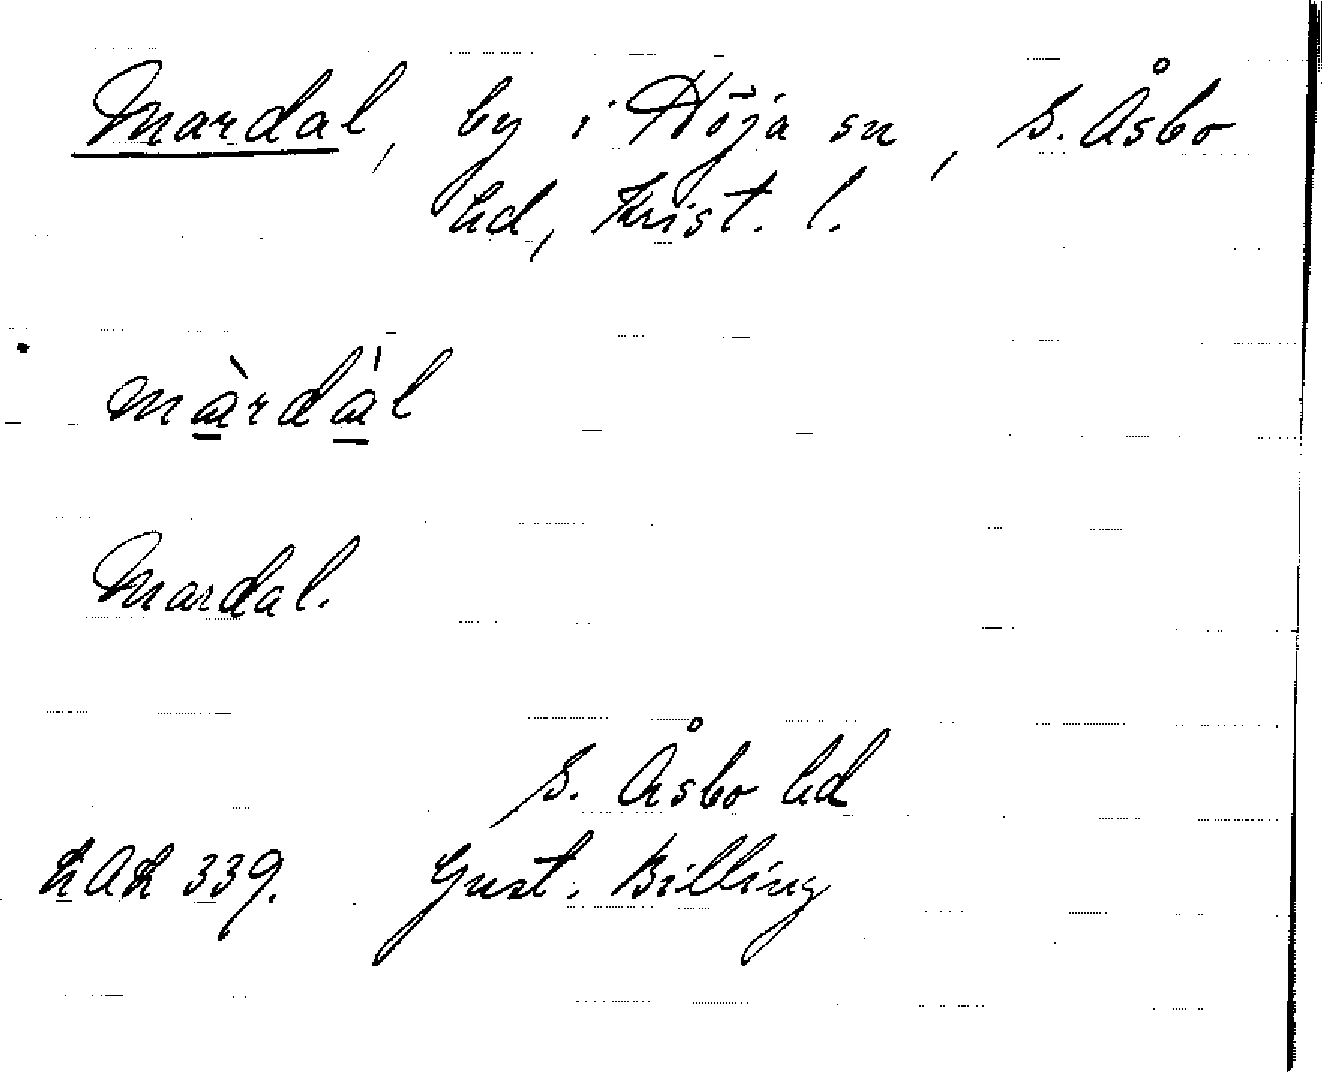 Mardal, by i Höja sn, S. Åsbo
hd, Krist. l.
màrdál
Mardal.
S. Åsbo hd
LAL 339. Gust. Billing